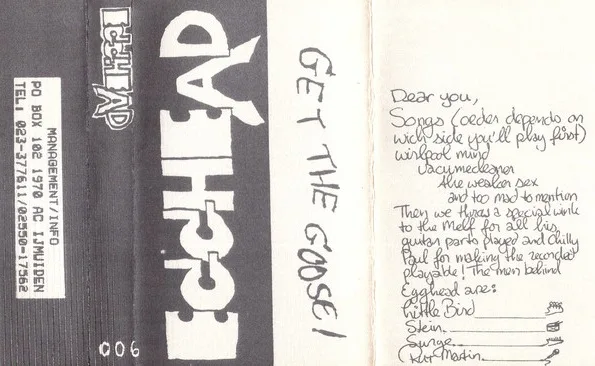 MANAGEMENT/INFO
PO BOX 102 1970 AC IJMUIDEN
TEL: 023-377611/02550-17562
EGGHEAD
006
EGGHEAD
GET THE GOOSE!
Dear you,
Songs (order depends on
wich side you'll play first)
wirlpool mind
vacumecleaner
the weaker sex
and too mad to mention
Then we throw a special wink
to the Melf for all his
guitar parts played and Chilly
Paul for making the recorded
playable! The men behind
Egghead are:
Little Bird
Stein
Surge
Kurt Martin